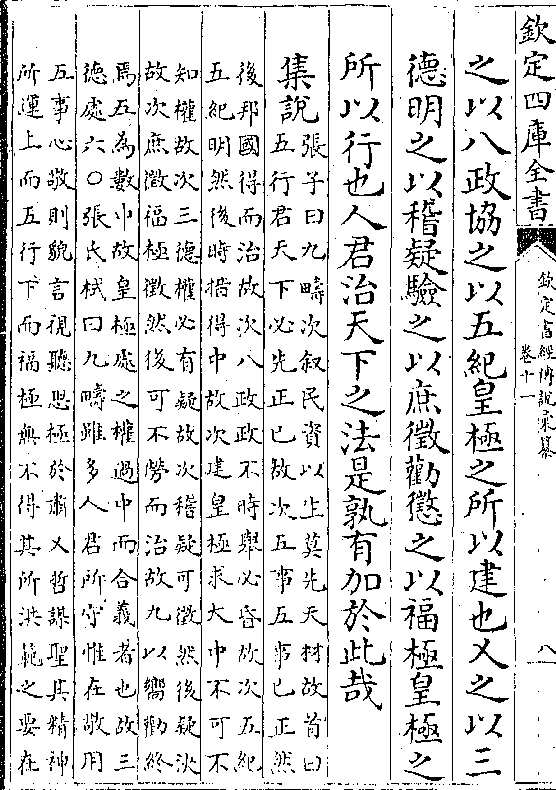 欽定四庫全書
欽定書經傳說彙纂
卷十一
八
之以八政協之以五紀皇極之所以建也乂之以三
德明之以稽疑驗之以庶徵勸懲之以福極皇極之
所以行也人君治天下之法是孰有加於此哉
集說
張子曰九疇次叙民資以生莫先天材故首曰
五行君天下必先正己故次五事五事已正然
後邦國得而治故次八政政不時舉必昏故次五紀
五紀明然後時措得中故次建皇極求大中不可不
知權故次三德權必有疑故次稽疑可徵然後疑決
故次庶徵福極徵然後可不勞而治故九以嚮勸終
焉五為數中故皇極處之權過中而合義者也故三
德處六○張氏栻曰九疇雖多人君所守惟在敬用
五事心敬則貌言視聽思極於肅乂哲謀聖其精神
所運上而五行下而福極無不得其所洪範之要在